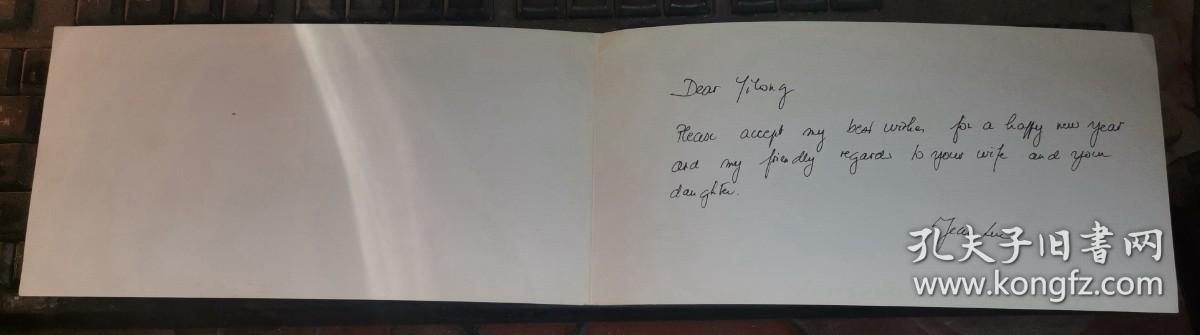 Dear Yilong
Please accept my best wishes for a happy new year
and my friendly regards to your wife and your
daughter.
Jean Luc
孔夫子旧书网
www.kongfz.com